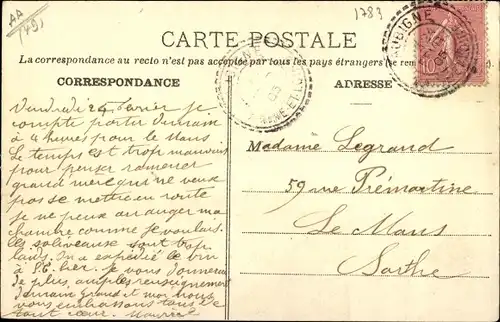 AA
1791
1783
CARTE POSTALE
La correspondance au recto n'est pas acceptée par tous les pays étrangers (se rem
CORRESPONDANCE
ADRESSE
AUBIGNÉ
10
03
Vendredi 24 Février je
compte partir demain
à 4 heures pour le Mans
Le temps est trop mauvais
pour penser ramener
grand mère qui ne veux
pas se mettre en route
je ne peux arranger ma
chambre comme je voulais
les soliveaux sont trop
laids. On a expédié le vin
à P.C. hier. je vous donnerai
de plus amples renseignements
demain Grand et moi nous
vous embrassons tous de
tout cœur. Maurice
Madame Legrand
59 rue Prémartine
Le Mans
Sarthe